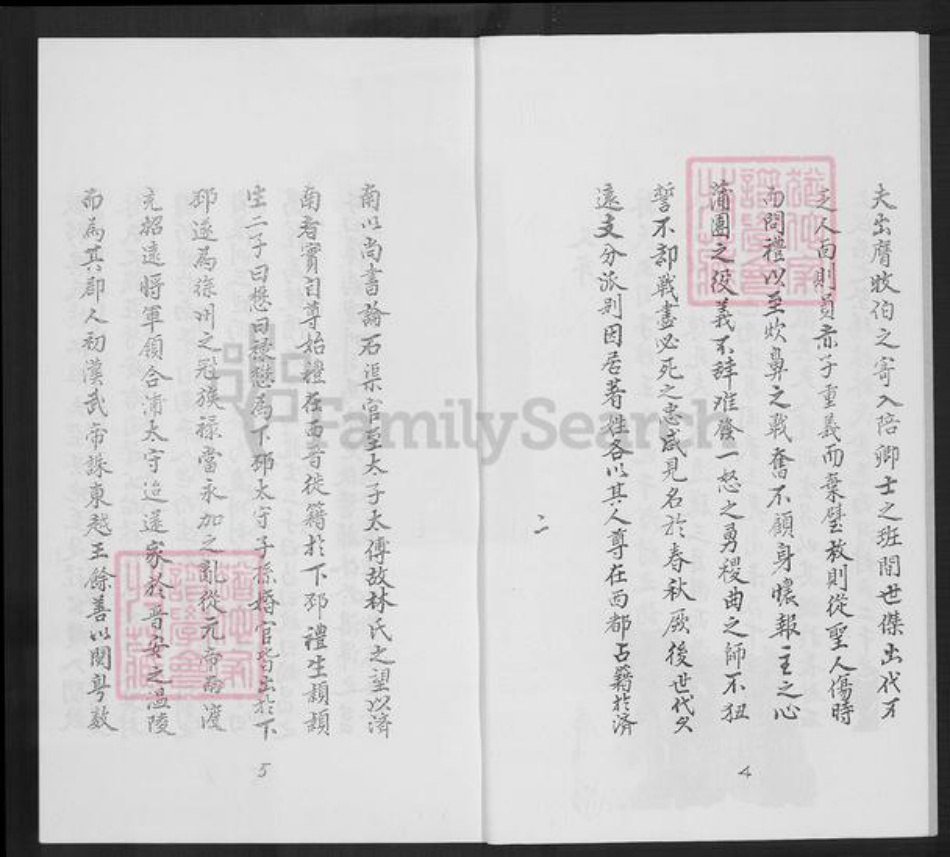 夫出膺牧伯之寄入陪卿士之班間世傑出代才
乏人回則員赤子重義而棄璧放則從聖人傷時
而問禮以至炊鼻之戰奮不顧身懷報主之心
蒲圃之役義不辭难發一怒之勇稷曲之師不狃
誓不卻戰盡必死之忠咸見名於春秋厥後世代久
遠支分派別因居著姓各以其人尊在西都占籍於済
二
4
南以尚書論石渠官至太子太傅故林氏之望以済
南者實自尊始禮在西晉徙籍於下邳禮生頴頴
生二子曰懋曰祿懋為下邳太守子孫婚官皆出於下
邳遂為徐州之冠族祿當永加之亂從元帝南渡
充招遠將軍領合浦太守迨遂家於晋安之温陵
而為其郡人初漢武帝誅東越王餘善以閩粤数
5
FamilySearch